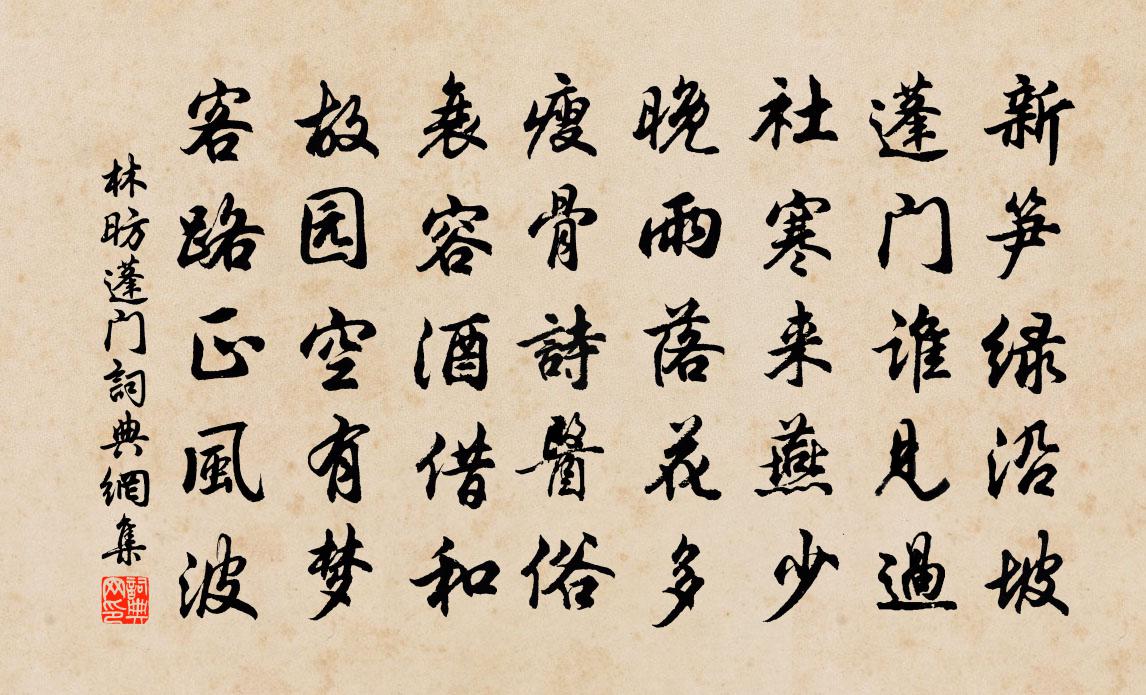 新笋绿沿坡
蓬门谁见過
社寒来燕少
晚雨落花多
瘦骨詩醫俗
衰容酒借和
故园空有梦
客路正風波
林昉蓬门詞典網集
詞典网印